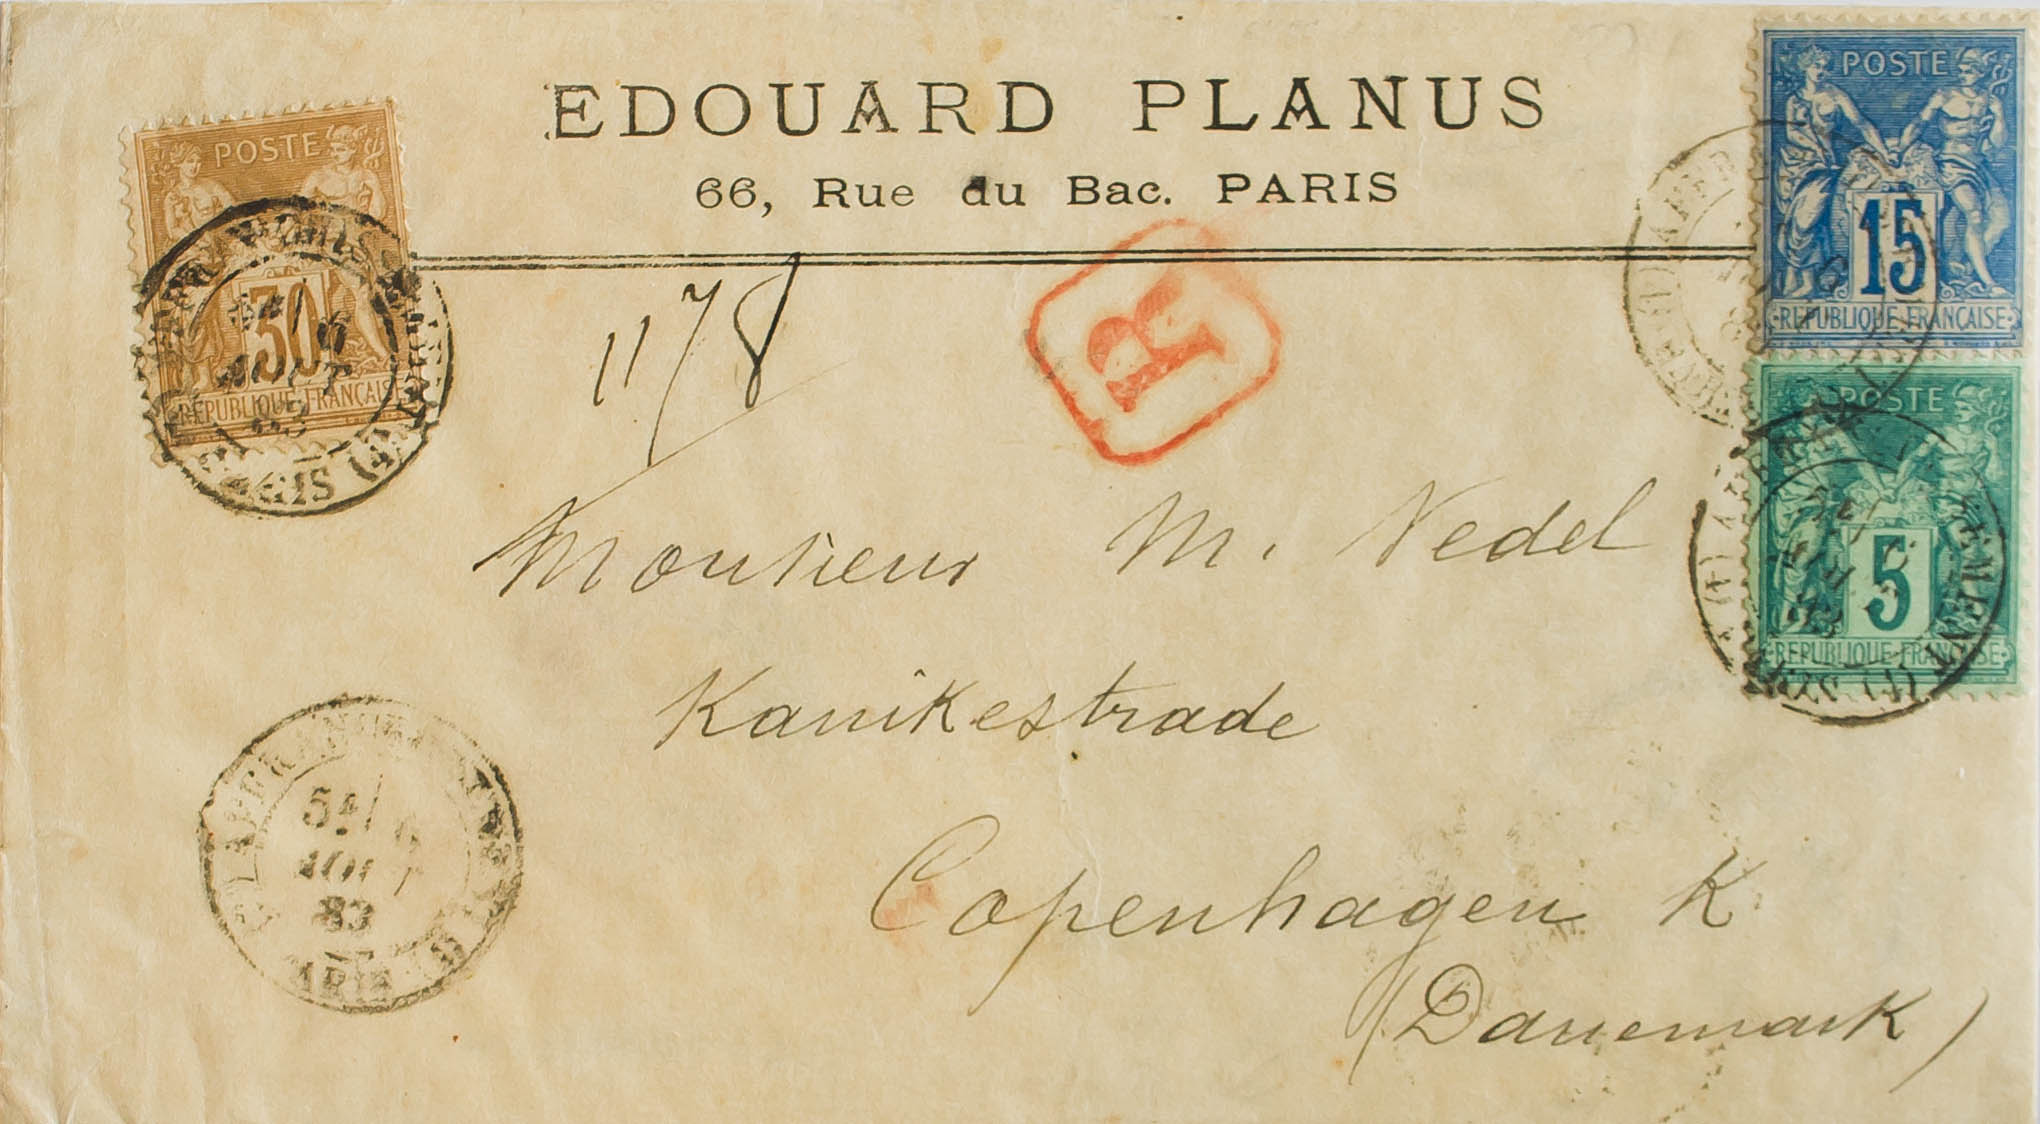 EDOUARD PLANUS
66, Rue du Bac. PARIS
POSTE
30
REPUBLIQUE FRANÇAISE
POSTE
15
REPUBLIQUE FRANÇAISE
1178
R
POSTE
5
REPUBLIQUE FRANÇAISE
Monsieur M. Nedel
Kanikestrade
Copenhagen K.
(Danemark)
83